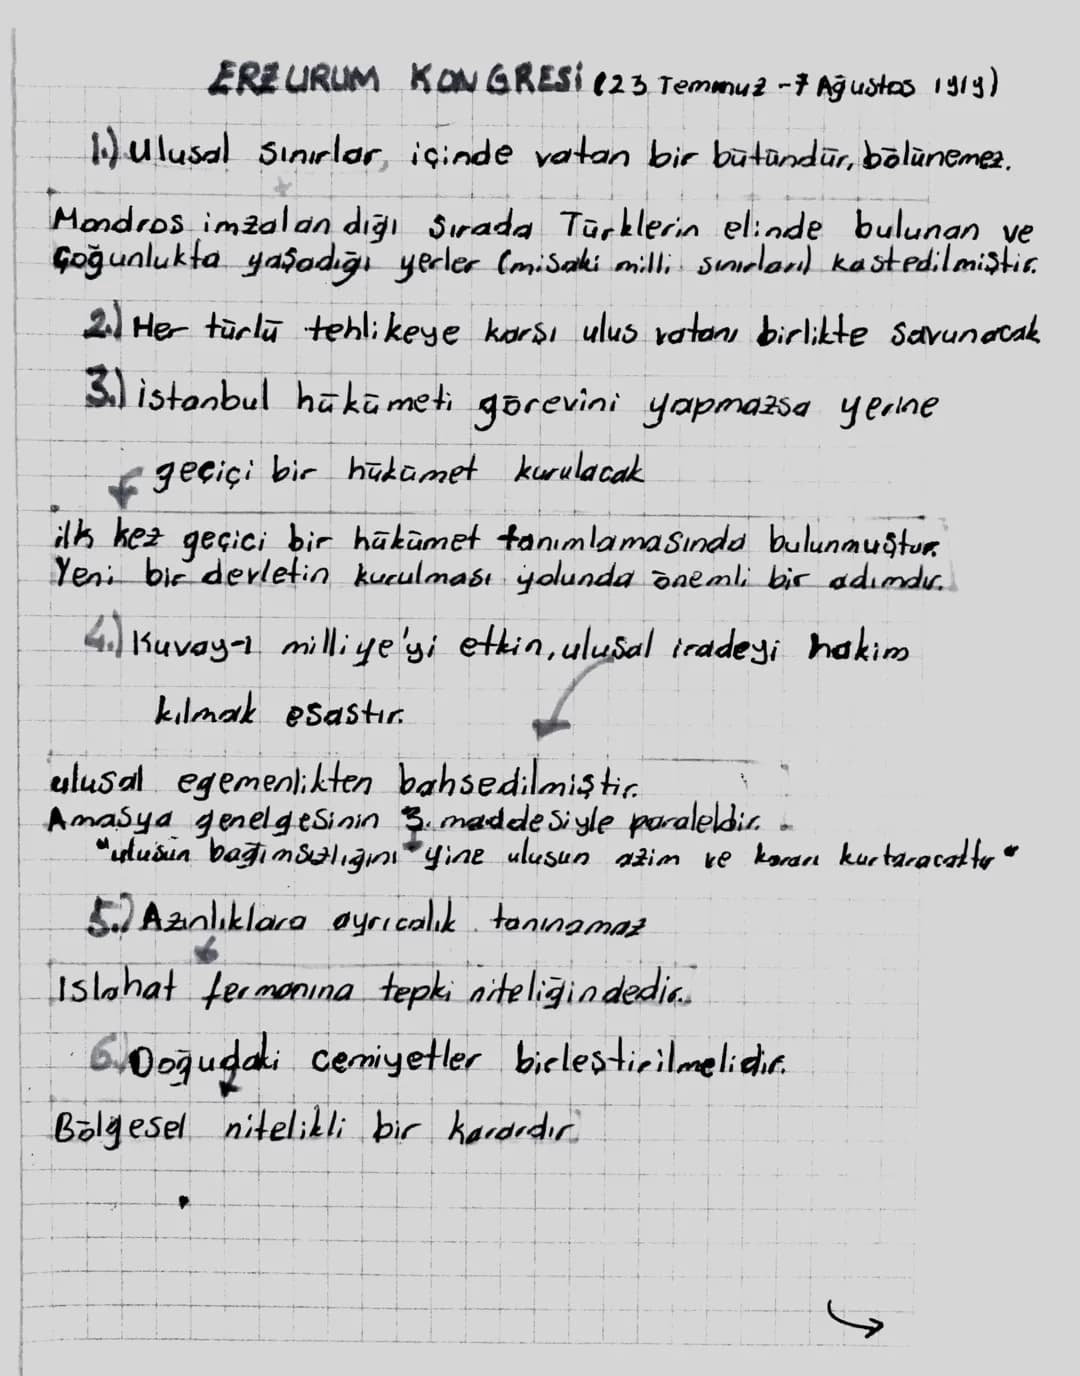 ERZURUM KONGRESİ (23 Temmuz - 7 Ağustos 1919)
1.) Ulusal sınırlar, içinde vatan bir bütündür, bölünemez.
Mondros imzalandığı sırada Türklerin elinde bulunan ve
Çoğunlukta yaşadığı yerler (misaki milli sınırları) kastedilmiştir.
2.) Her türlü tehlikeye karşı ulus vatanı birlikte savunacak
3.) istanbul hükümeti görevini yapmazsa yerine
geçiçi bir hükümet kurulacak
ilk kez geçici bir hükümet tanımlamasında bulunmuştur.
Yeni bir devletin kurulması yolunda önemli bir adımdır.
4.) Kuvay-ı milliye'yi etkin, ulusal iradeyi hakim
kılmak esastır.
ulusal egemenlikten bahsedilmiştir.
Amasya genelgesinin 3. maddesiyle paraleldir.
"ulusun bağımsızlığını yine ulusun azim ve kararı kurtaracaktır"
5.) Azınlıklara ayrıcalık tanınamaz
Islahat fermanına tepki niteliğindedir.
6.) Doğudaki cemiyetler birleştirilmelidir.
Bölgesel nitelikli bir karardır.